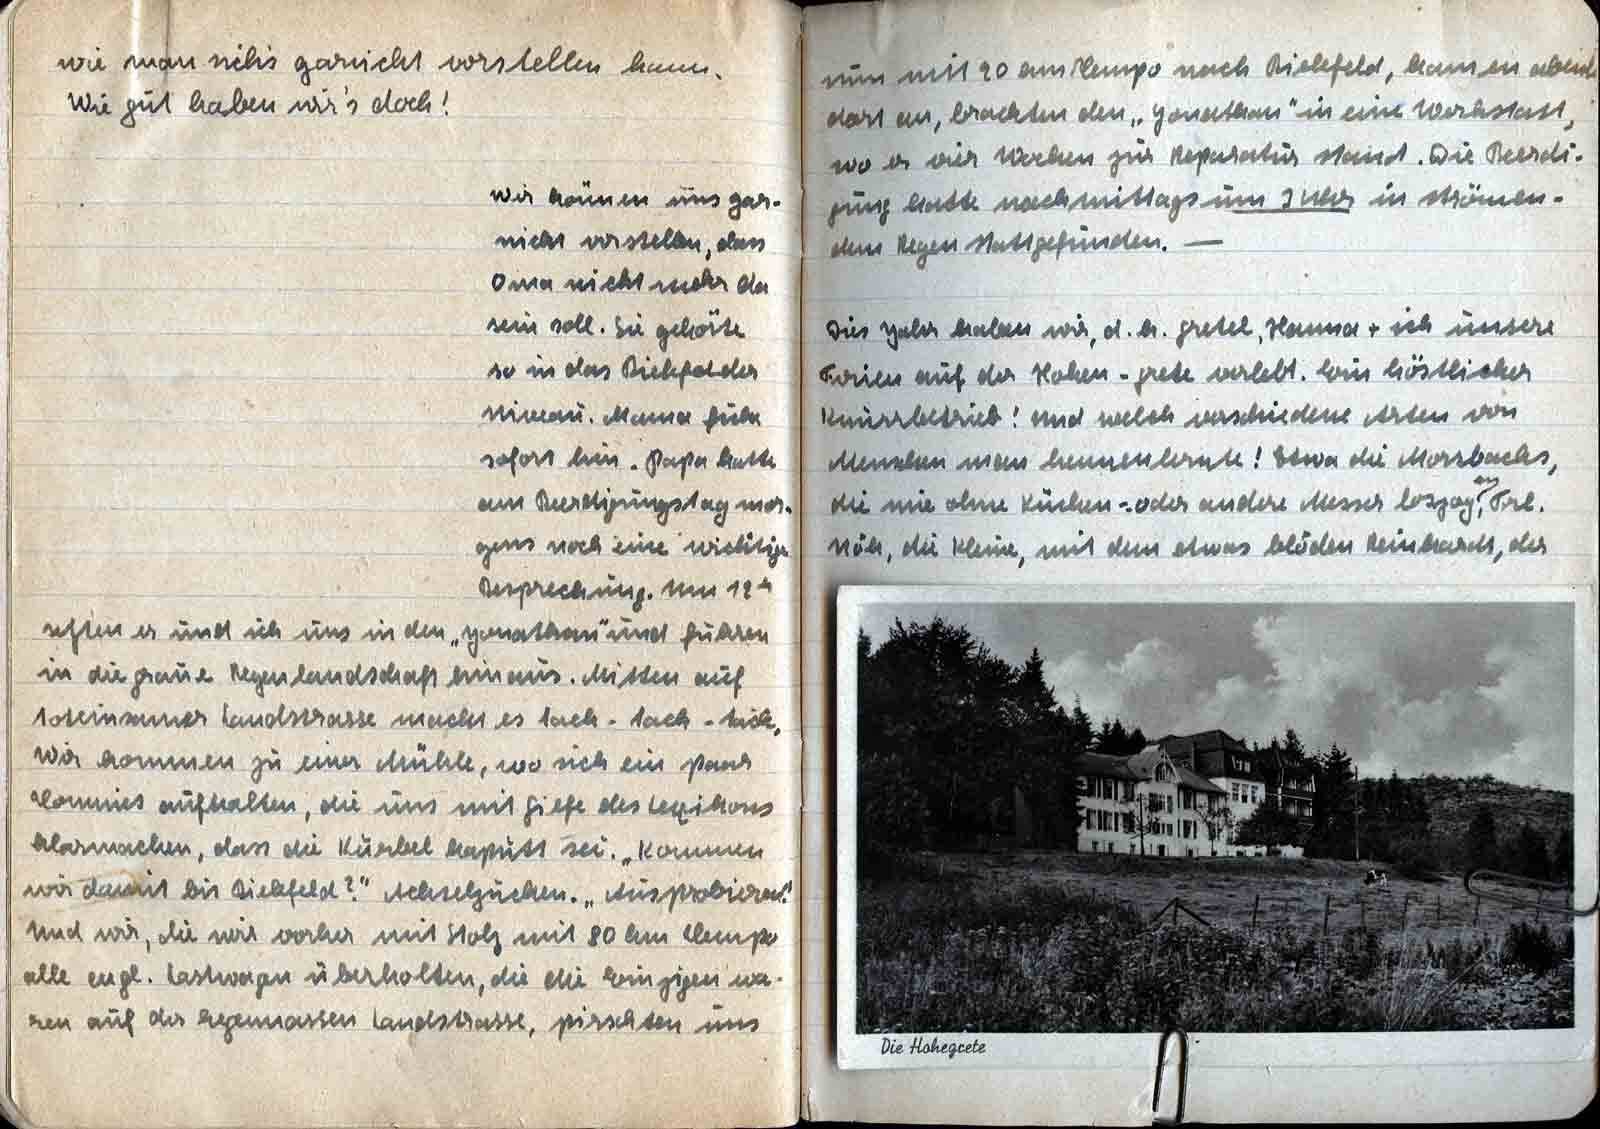 wie man sich's garnicht vorstellen kann.
Wie gut haben wir's doch!
Wir können uns gar-
nicht vorstellen, dass
Oma nicht mehr da
sein soll. Sie gehörte
so in das Bielefelder
Niveau. Mama fuhr
sofort hin. Papa hatte
am Beerdigungstag mor-
gens noch eine wichtige
Besprechung. Um 12 h
setzten er und ich uns in den „Jonathan" und fuhren
in die graue Regenlandschaft hinaus. Mitten auf
toteinsamer Landstrasse macht es tack - tack - tack,
Wir kommen zu einer Mühle, wo sich ein paar
Tommies aufhalten, die uns mit Hilfe des Lexikons
klarmachen, dass die Kurbel kaputt sei. „Kommen
wir damit bis Bielefeld?" Achselzucken. „Ausprobieren!
Und wir, die wir vorher mit Stolz mit 80 km Tempo
alle engl. Lastwagen überholten, die die Einzigen wa-
ren auf der regennassen Landstrasse, pirschten uns
nun mit 20 km Tempo nach Bielefeld, kamen abends
dort an, brachten den „Jonathan" in eine Werkstatt,
wo er vier Wochen zur Reparatur stand. Die Beerdi-
gung hatte nachmittags um 3 Uhr in strömen-
dem Regen stattgefunden. —
Dies Jahr haben wir, d. h. Gretel, Hanna + ich unsere
Ferien auf der Hohen-grete verlebt. Ein köstlicher
Knurrbetrieb! Und welch verschiedene Arten von
Menschen man kennenlernte! Etwa die Morsbachs,
die nie ohne Küchen- oder andere Messer loszogen, Frl.
Nöh, die Kleine, mit dem etwas blöden Reinhardt, der
Die Hohegrete